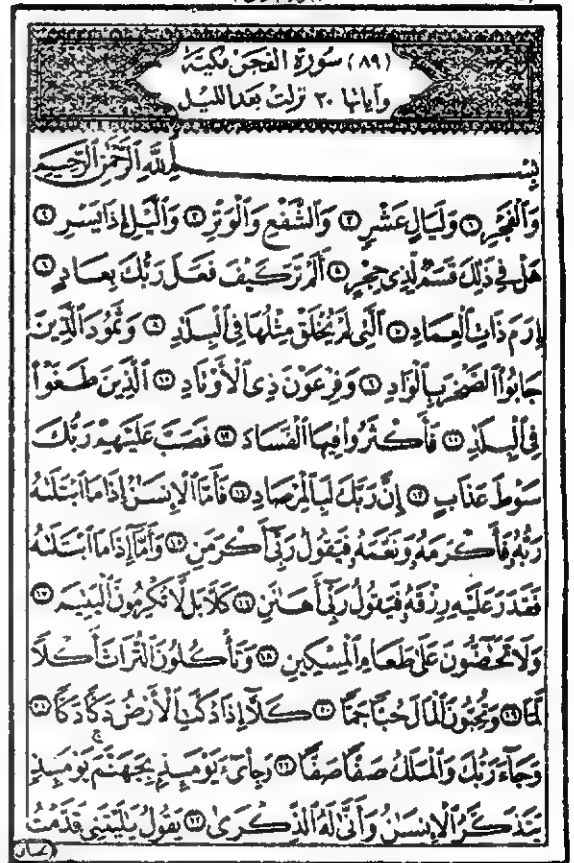 (٨٩) سورة الفجر مكية
وآياتها ٣٠ نزلت بعد الليل
بِسْمِ ٱللَّهِ ٱلرَّحْمَٰنِ ٱلرَّحِيمِ
وَٱلْفَجْرِ ۝١ وَلَيَالٍ عَشْرٍ ۝٢ وَٱلشَّفْعِ وَٱلْوَتْرِ ۝٣ وَٱلَّيْلِ إِذَا يَسْرِ ۝٤
هَلْ فِى ذَٰلِكَ قَسَمٌ لِّذِى حِجْرٍ ۝٥ أَلَمْ تَرَ كَيْفَ فَعَلَ رَبُّكَ بِعَادٍ ۝٦
إِرَمَ ذَاتِ ٱلْعِمَادِ ۝٧ ٱلَّتِى لَمْ يُخْلَقْ مِثْلُهَا فِى ٱلْبِلَٰدِ ۝٨ وَثَمُودَ ٱلَّذِينَ
جَابُوا۟ ٱلصَّخْرَ بِٱلْوَادِ ۝٩ وَفِرْعَوْنَ ذِى ٱلْأَوْتَادِ ۝١٠ ٱلَّذِينَ طَغَوْا۟
فِى ٱلْبِلَٰدِ ۝١١ فَأَكْثَرُوا۟ فِيهَا ٱلْفَسَادَ ۝١٢ فَصَبَّ عَلَيْهِمْ رَبُّكَ
سَوْطَ عَذَابٍ ۝١٣ إِنَّ رَبَّكَ لَبِٱلْمِرْصَادِ ۝١٤ فَأَمَّا ٱلْإِنسَٰنُ إِذَا مَا ٱبْتَلَىٰهُ
رَبُّهُۥ فَأَكْرَمَهُۥ وَنَعَّمَهُۥ فَيَقُولُ رَبِّىٓ أَكْرَمَنِ ۝١٥ وَأَمَّآ إِذَا مَا ٱبْتَلَىٰهُ
فَقَدَرَ عَلَيْهِ رِزْقَهُۥ فَيَقُولُ رَبِّىٓ أَهَٰنَنِ ۝١٦ كَلَّا بَل لَّا تُكْرِمُونَ ٱلْيَتِيمَ ۝١٧
وَلَا تَحَٰٓضُّونَ عَلَىٰ طَعَامِ ٱلْمِسْكِينِ ۝١٨ وَتَأْكُلُونَ ٱلتُّرَاثَ أَكْلًا
لَّمًّا ۝١٩ وَتُحِبُّونَ ٱلْمَالَ حُبًّا جَمًّا ۝٢٠ كَلَّآ إِذَا دُكَّتِ ٱلْأَرْضُ دَكًّا دَكًّا ۝٢١
وَجَآءَ رَبُّكَ وَٱلْمَلَكُ صَفًّا صَفًّا ۝٢٢ وَجِا۟ىٓءَ يَوْمَئِذٍۭ بِجَهَنَّمَ يَوْمَئِذٍ
يَتَذَكَّرُ ٱلْإِنسَٰنُ وَأَنَّىٰ لَهُ ٱلذِّكْرَىٰ ۝٢٣ يَقُولُ يَٰلَيْتَنِى قَدَّمْتُ